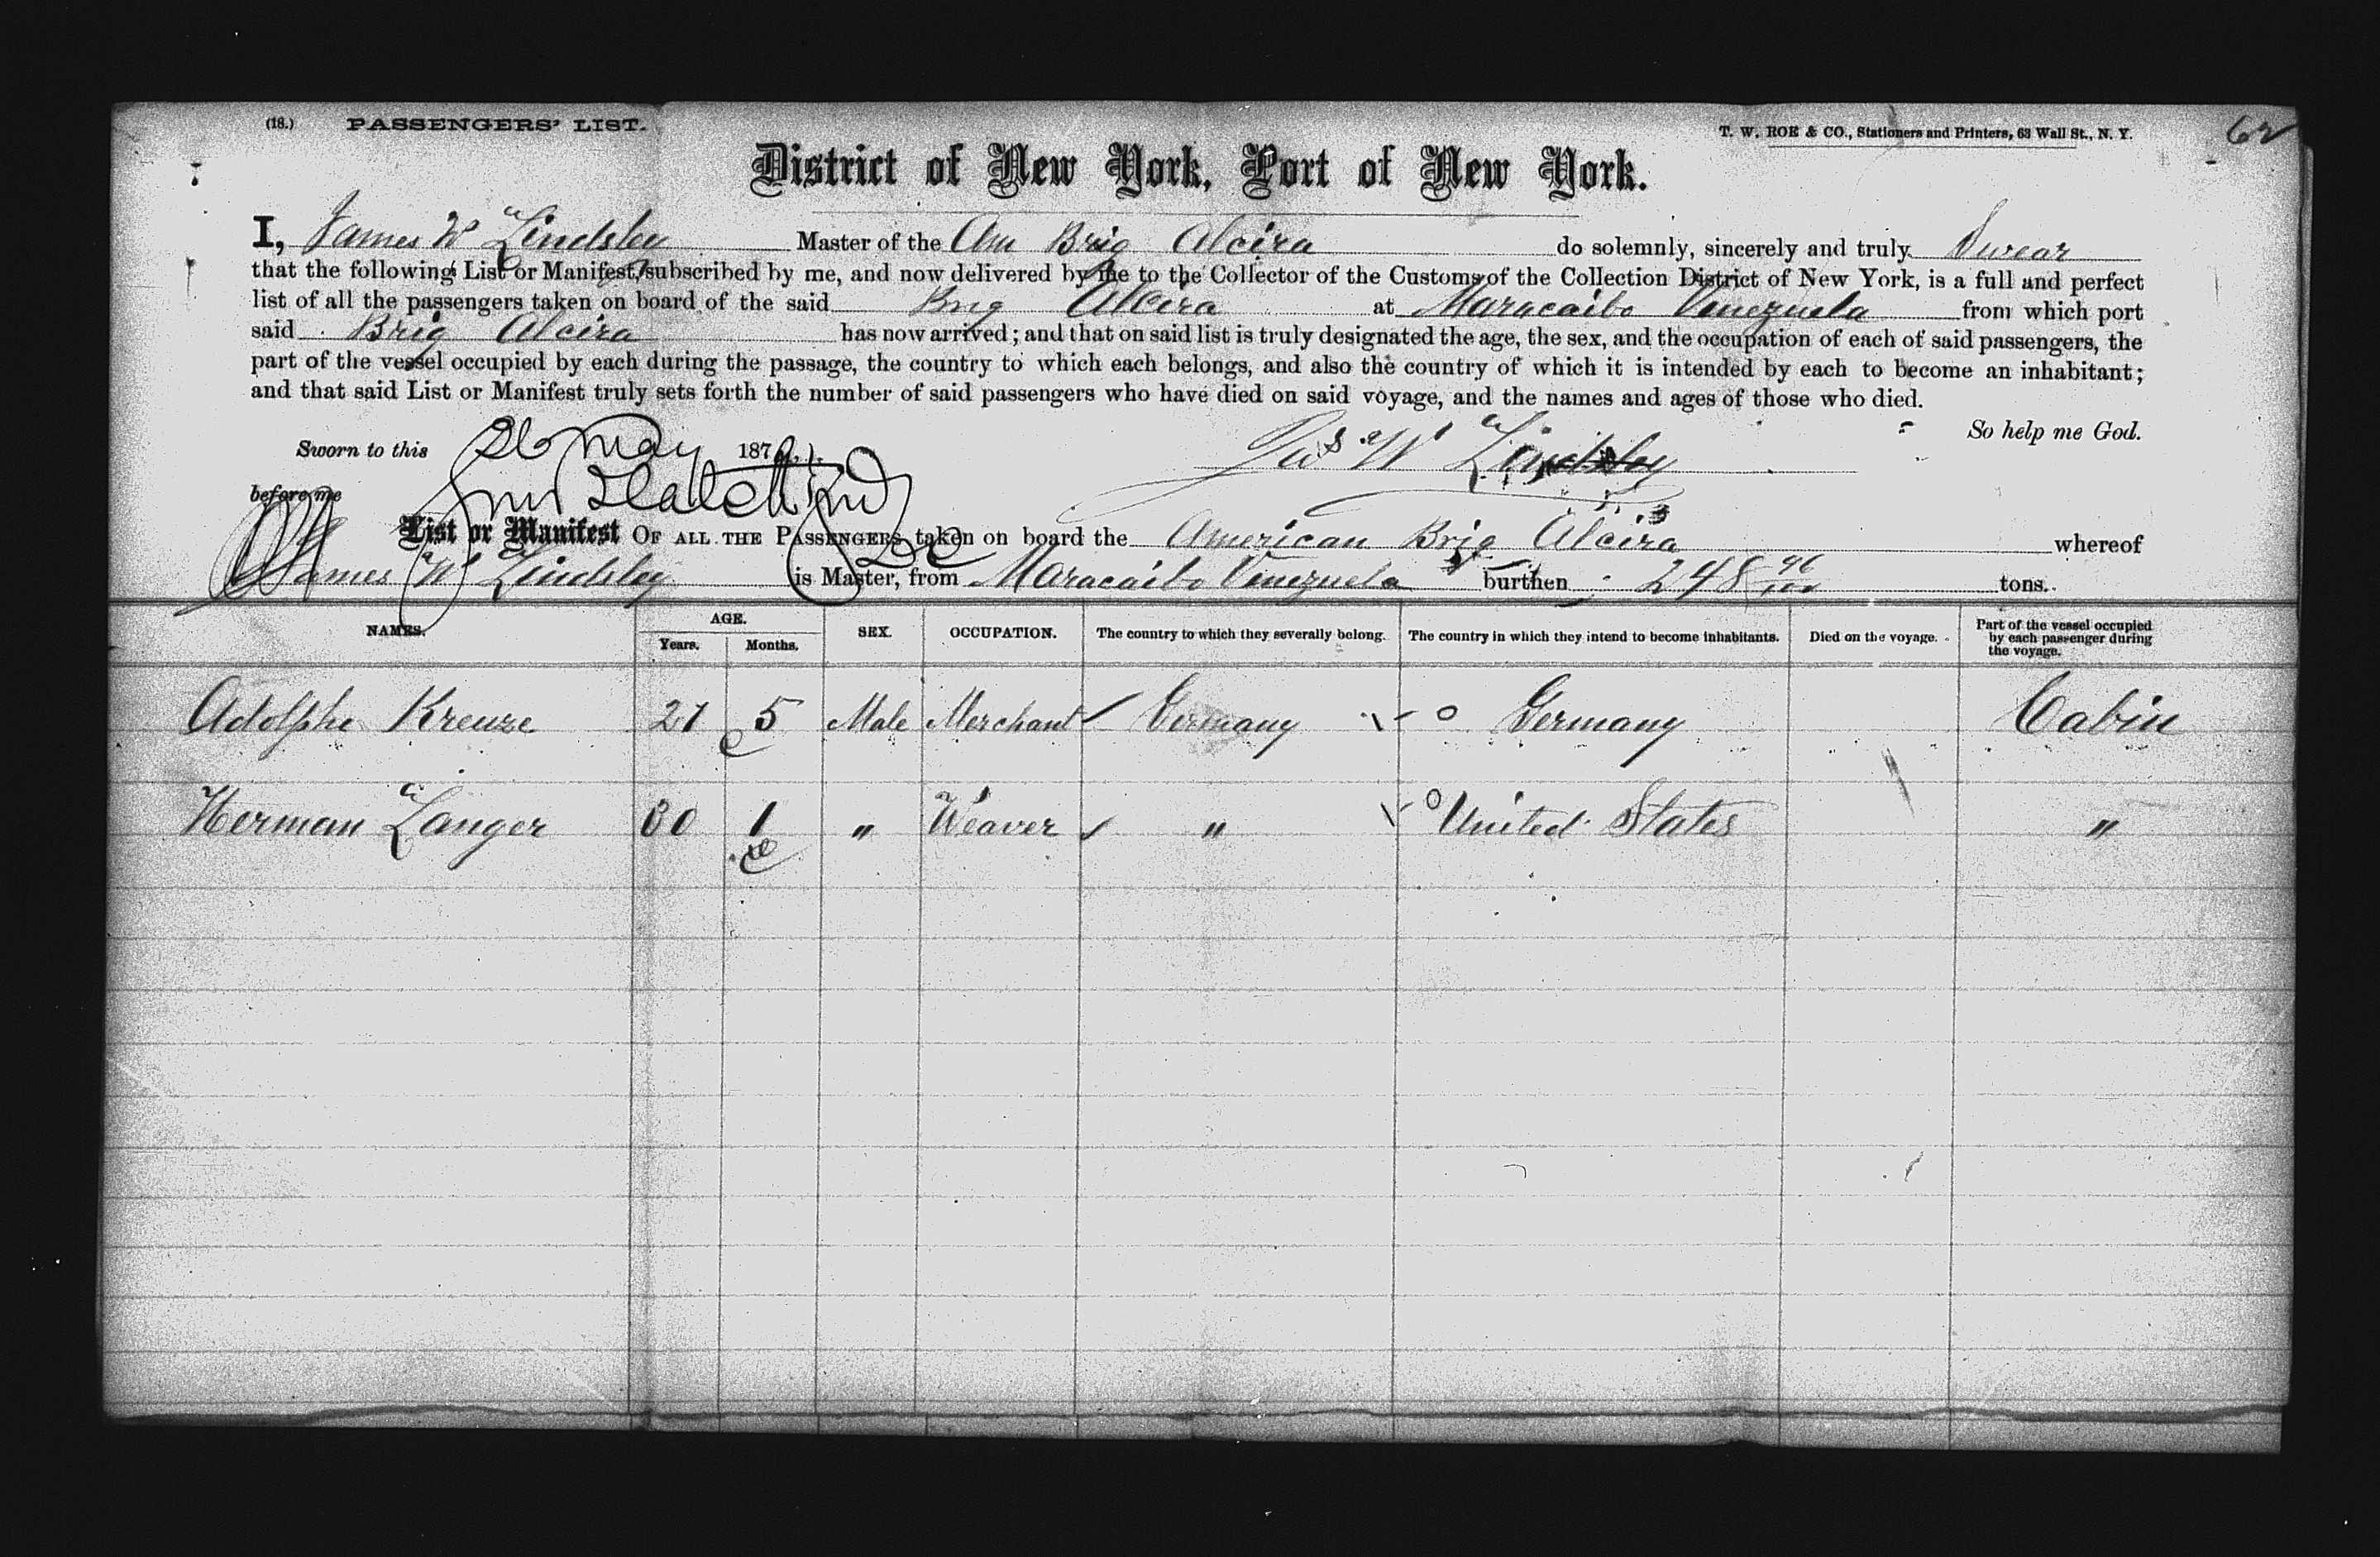 (18.) PASSENGERS' LIST. T. W. ROE & CO., Stationers and Printers, 63 Wall St., N. Y. 62
District of New York, Port of New York.
I, James W Lindsley Master of the Am Brig Alcira do solemnly, sincerely and truly Swear
that the following List or Manifest, subscribed by me, and now delivered by me to the Collector of the Customs of the Collection District of New York, is a full and perfect
list of all the passengers taken on board of the said Brig Alcira at Maracaibo Venezuela from which port
said Brig Alcira has now arrived; and that on said list is truly designated the age, the sex, and the occupation of each of said passengers, the
part of the vessel occupied by each during the passage, the country to which each belongs, and also the country of which it is intended by each to become an inhabitant;
and that said List or Manifest truly sets forth the number of said passengers who have died on said voyage, and the names and ages of those who died.
So help me God.
Sworn to this 26 May 187 Jas W Lindsley
before me
List or Manifest OF ALL THE PASSENGERS taken on board the American Brig Alcira whereof
James W Lindsley is Master, from Maracaibo Venezuela burthen 248 96/100 tons.
NAMES. AGE. Years. Months. SEX. OCCUPATION. The country to which they severally belong. The country in which they intend to become inhabitants. Died on the voyage. Part of the vessel occupied by each passenger during the voyage.
Adolphe Kreuze 27 5 Male Merchant Germany Germany Cabin
Herman Langer 30 1 " Weaver " United States "